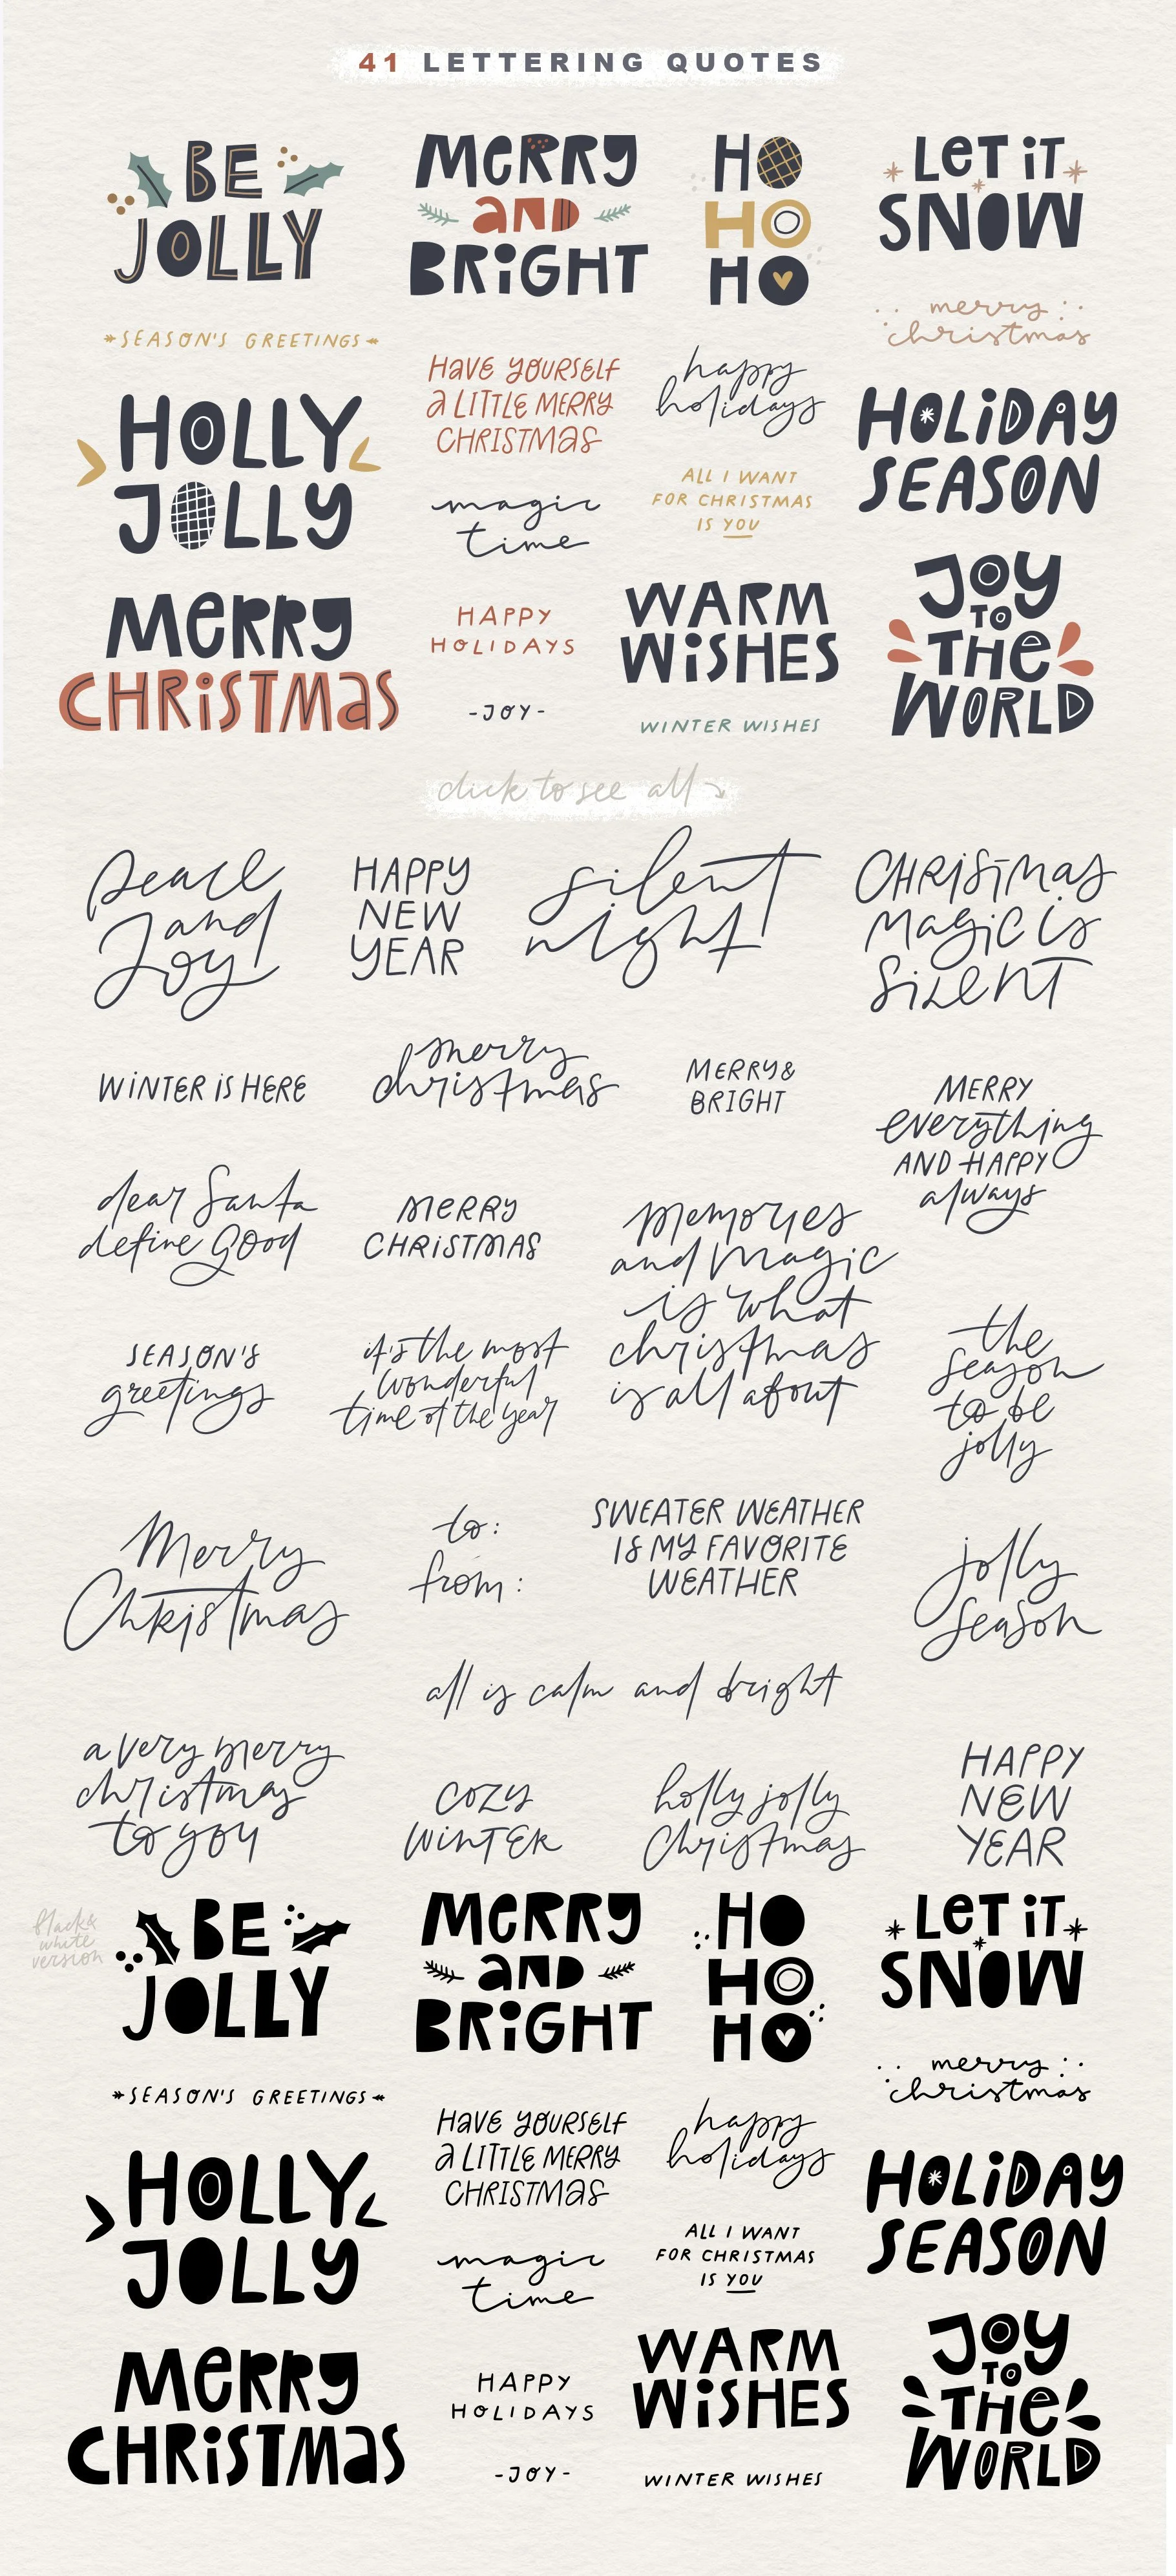 41 LETTERING QUOTES
BE
JOLLY
MERRY
AND
BRIGHT
HO
HO
HO
LET IT
SNOW
SEASON'S GREETINGS
merry
christmas
HAVE YOURSELF
A LITTLE MERRY
CHRISTMAS
happy
holidays
HOLLY
JOLLY
HOLIDAY
SEASON
ALL I WANT
FOR CHRISTMAS
IS YOU
magic
time
MERRY
CHRISTMAS
HAPPY
HOLIDAYS
WARM
WISHES
JOY
TO
THE
WORLD
-JOY-
WINTER WISHES
click to see all
peace
and
Joy
HAPPY
NEW
YEAR
silent
night
CHRISTMAS
MAGIC is
SILENT
WINTER IS HERE
merry
christmas
MERRY &
BRIGHT
MERRY
everything
AND HAPPY
always
dear Santa
define Good
MERRY
CHRISTMAS
memories
and magic
is what
christmas
is all about
SEASON'S
greetings
it's the most
wonderful
time of the year
the
season
to be
jolly
Merry
Christmas
to:
from:
SWEATER WEATHER
IS MY FAVORITE
WEATHER
jolly
season
all is calm and bright
a very merry
christmas
to you
COZY
WINTER
holly jolly
Christmas
HAPPY
NEW
YEAR
black &
white
version
BE
JOLLY
MERRY
AND
BRIGHT
HO
HO
HO
LET IT
SNOW
SEASON'S GREETINGS
merry
christmas
HAVE YOURSELF
A LITTLE MERRY
CHRISTMAS
happy
holidays
HOLLY
JOLLY
HOLIDAY
SEASON
ALL I WANT
FOR CHRISTMAS
IS YOU
magic
time
MERRY
CHRISTMAS
HAPPY
HOLIDAYS
WARM
WISHES
JOY
TO
THE
WORLD
-JOY-
WINTER WISHES